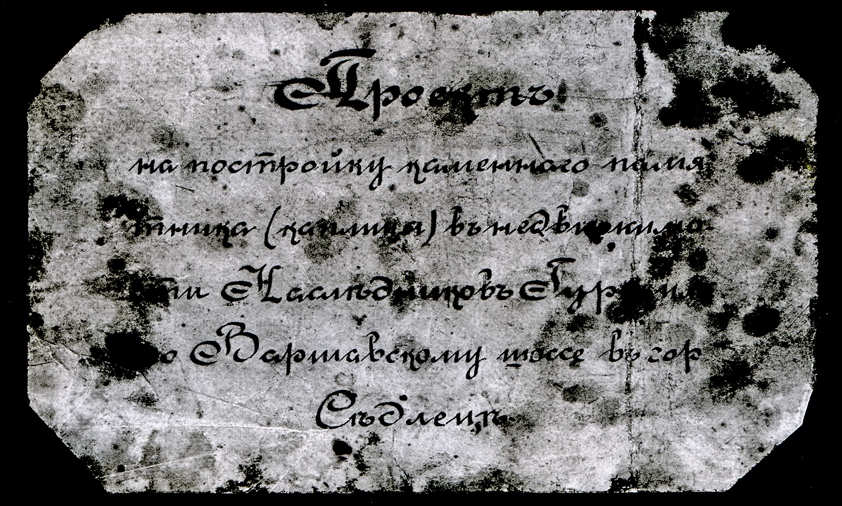 Проектъ
на постройку каменнаго памя
тника (каплица) въ недвижимо
сти Наслѣдниковъ
по Варшавскому шоссе въ гор
Сѣдлецѣ